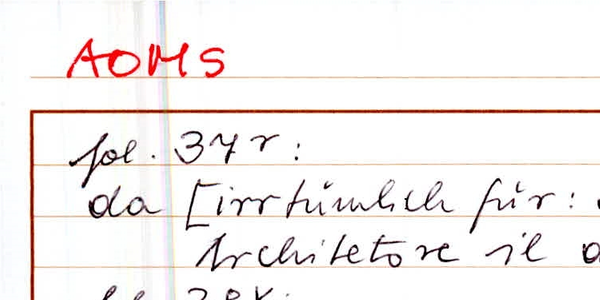 AOMS
fol. 37r:
da [irrtümlich für:
Architetore il